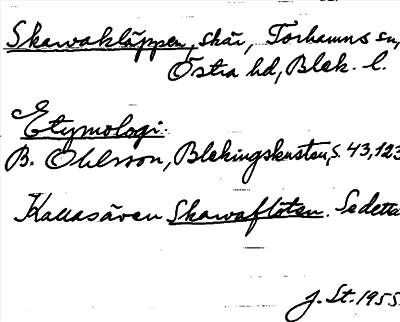 Skawakläppen, skär, Torhamns sn,
Östra hd, Blek. l.
Etymologi:
B. Ohlsson, Blekingskusten, s. 43, 123
Kallas även Skawaflöten. Se detta
J. St. 1955.